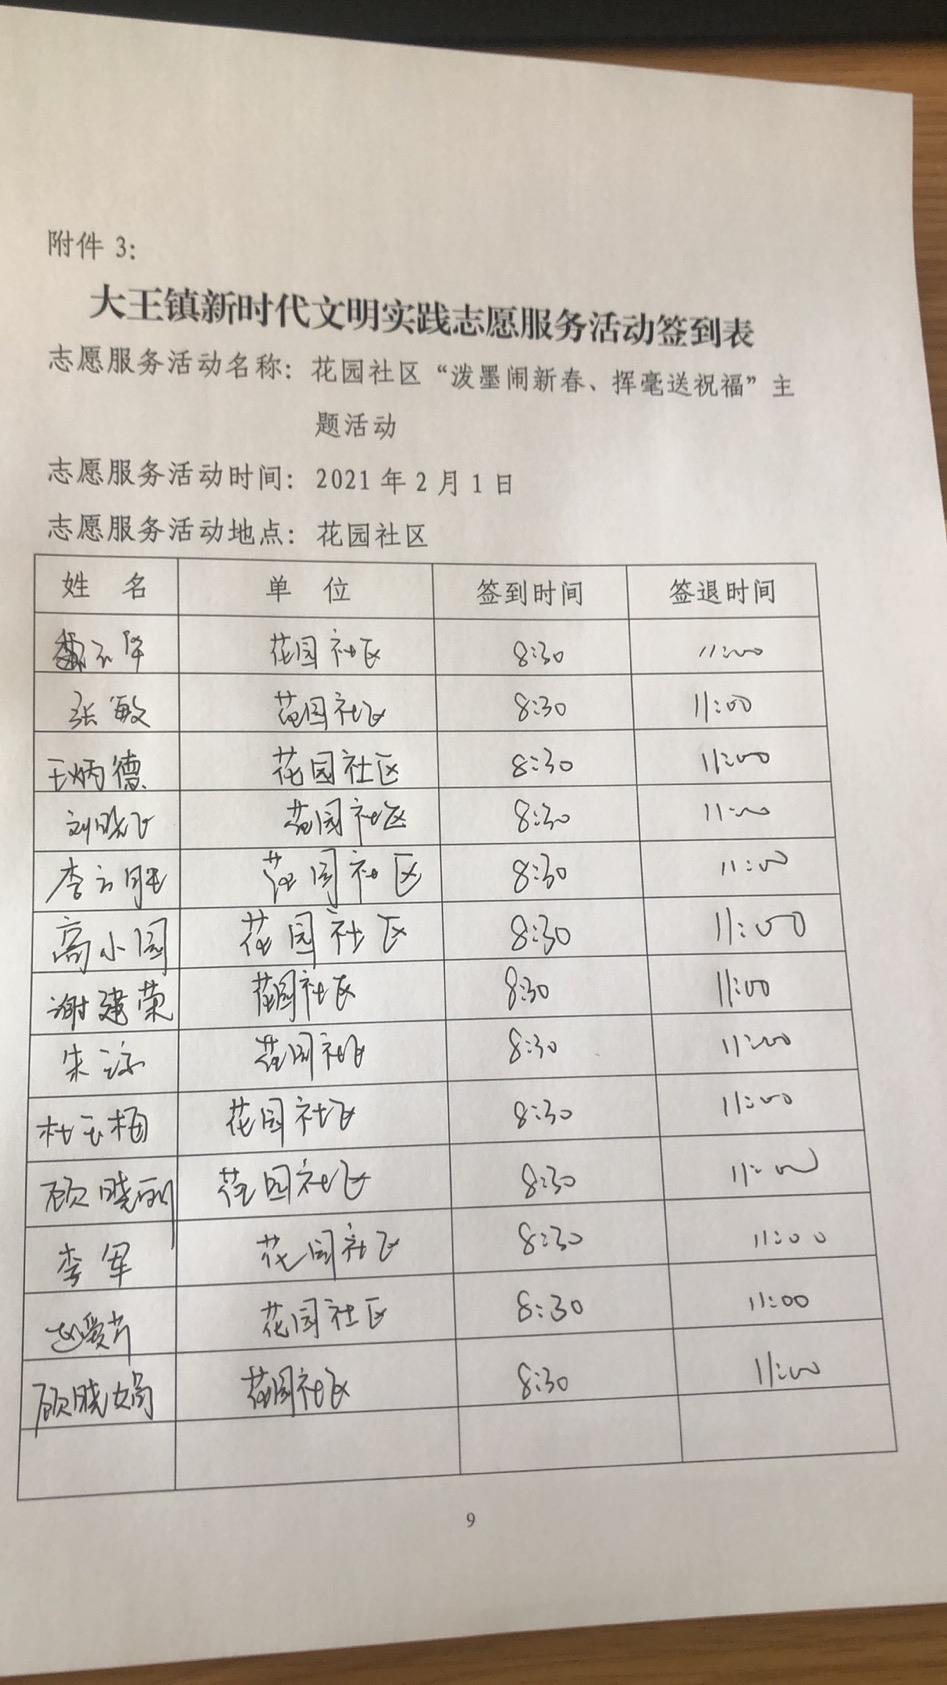 附件 3:
大王镇新时代文明实践志愿服务活动签到表
志愿服务活动名称: 花园社区“泼墨闹新春、挥毫送祝福”主
题活动
志愿服务活动时间: 2021 年 2 月 1 日
志愿服务活动地点: 花园社区
姓 名 单 位 签到时间 签退时间
花园社区 8:30 11:00
张敏 花园社区 8:30 11:00
王炳德 花园社区 8:30 11:00
刘晓飞 花园社区 8:30 11:00
李云胜 花园社区 8:30 11:00
高小园 花园社区 8:30 11:00
谢建荣 花园社区 8:30 11:00
朱泳 花园社区 8:30 11:00
杜玉梅 花园社区 8:30 11:00
顾晓丽 花园社区 8:30 11:00
李军 花园社区 8:30 11:00
花园社区 8:30 11:00
顾晓娟 花园社区 8:30 11:00
9